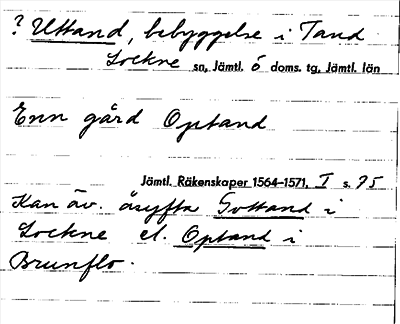 ? Uttand, bebyggelse i Tand
Lockne sn, Jämtl. ö doms. tg, Jämtl. län
Enn gård Optand
Jämtl. Räkenskaper 1564–1571, I s. 75
Kan äv. åsyfta Tottand i
Lockne el. Optand i
Brunflo.